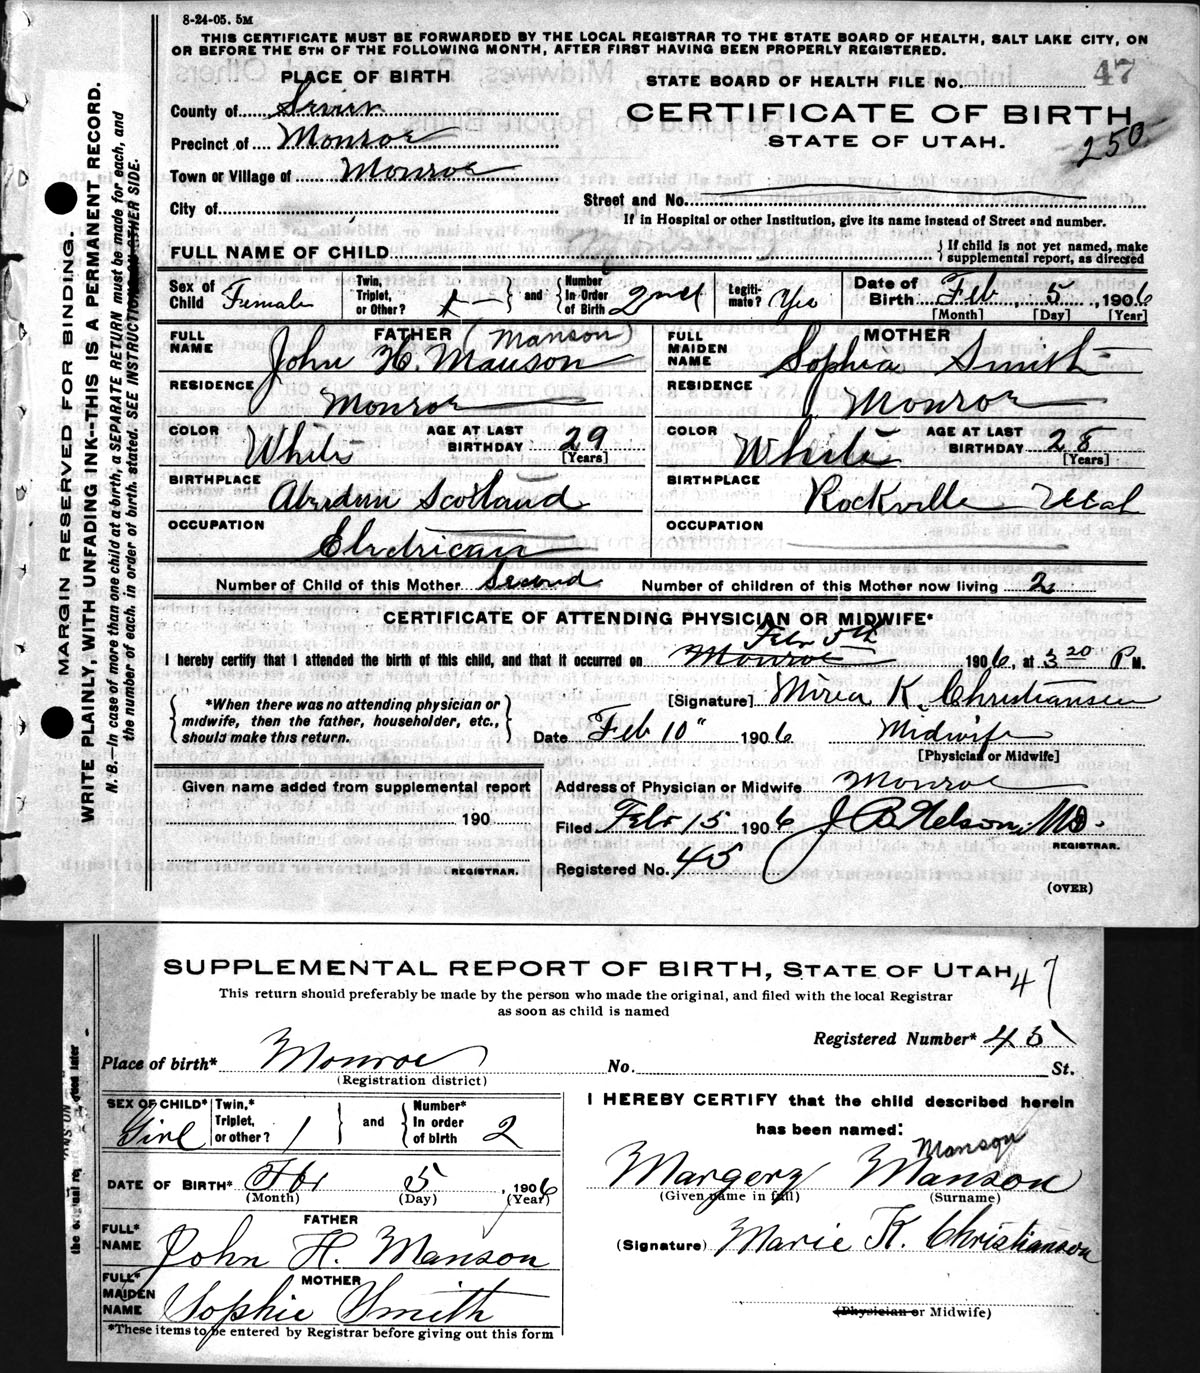 8-24-05. 5M
THIS CERTIFICATE MUST BE FORWARDED BY THE LOCAL REGISTRAR TO THE STATE BOARD OF HEALTH, SALT LAKE CITY, ON
OR BEFORE THE 5TH OF THE FOLLOWING MONTH, AFTER FIRST HAVING BEEN PROPERLY REGISTERED.
MARGIN RESERVED FOR BINDING.
WRITE PLAINLY, WITH UNFADING INK--THIS IS A PERMANENT RECORD.
N. B.—In case of more than one child at a birth, a SEPARATE RETURN must be made for each, and
the number of each, in order of birth, stated. SEE INSTRUCTIONS ON OTHER SIDE.
PLACE OF BIRTH
County of Sevier
Precinct of Monroe
Town or Village of Monroe
City of
STATE BOARD OF HEALTH FILE No. 47
CERTIFICATE OF BIRTH
STATE OF UTAH.
250
Street and No.
If in Hospital or other Institution, give its name instead of Street and number.
FULL NAME OF CHILD
If child is not yet named, make
supplemental report, as directed
Sex of Child Female
Twin, Triplet, or Other? 1
and
Number In Order of Birth 2nd
Legiti-mate? Yes
Date of Birth Feb 5, 1906
[Month] [Day] [Year]
FATHER
(Manson)
FULL NAME John H. Mauson
RESIDENCE Monroe
COLOR White
AGE AT LAST BIRTHDAY 29
[Years]
BIRTHPLACE Aberdeen Scotland
OCCUPATION Eletrican
MOTHER
FULL MAIDEN NAME Sophia Smith
RESIDENCE Monroe
COLOR White
AGE AT LAST BIRTHDAY 28
[Years]
BIRTHPLACE Rockville Utah
OCCUPATION
Number of Child of this Mother Second
Number of children of this Mother now living 2
CERTIFICATE OF ATTENDING PHYSICIAN OR MIDWIFE*
Feb 5th
I hereby certify that I attended the birth of this child, and that it occurred on Monroe 1906, at 3 20 P M.
*When there was no attending physician or
midwife, then the father, householder, etc.,
should make this return.
[Signature] Mirea K. Christiansen
Date Feb 10" 1906 Midwife
[Physician or Midwife]
Given name added from supplemental report
190
REGISTRAR.
Address of Physician or Midwife Monroe
Filed Feb 15 1906 J B Nelson, MD.
REGISTRAR.
Registered No. 45
(OVER)
SUPPLEMENTAL REPORT OF BIRTH, STATE OF UTAH
47
This return should preferably be made by the person who made the original, and filed with the local Registrar
as soon as child is named
Registered Number* 45
Place of birth* Monroe No. St.
(Registration district)
SEX OF CHILD* Girl
Twin,* Triplet, or other? 1
and
Number* In order of birth 2
DATE OF BIRTH* Feb 5, 1906
(Month) (Day) (Year)
FATHER
FULL* NAME John H. Manson
MOTHER
FULL* MAIDEN NAME Sophie Smith
*These items to be entered by Registrar before giving out this form
I HEREBY CERTIFY that the child described herein
has been named:
Manson
Margery Manson
(Given name in full) (Surname)
(Signature) Marie K. Christianson
(Physician or Midwife)